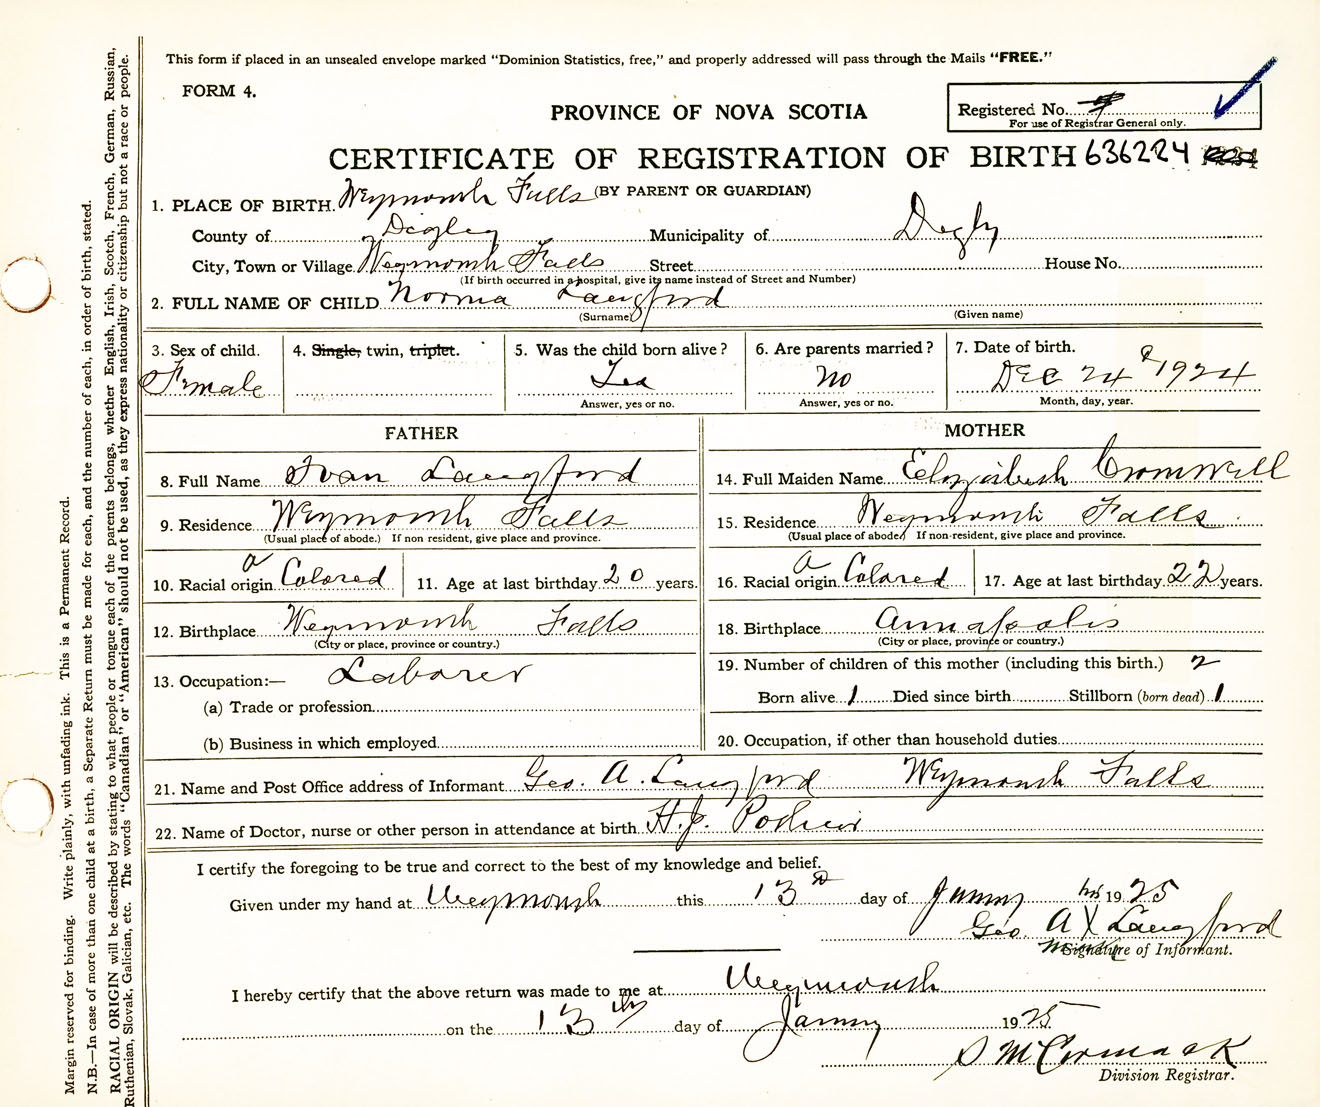 This form if placed in an unsealed envelope marked "Dominion Statistics, free," and properly addressed will pass through the Mails "FREE."
FORM 4.
PROVINCE OF NOVA SCOTIA
Registered No.
For use of Registrar General only.
CERTIFICATE OF REGISTRATION OF BIRTH 636224
(BY PARENT OR GUARDIAN)
1. PLACE OF BIRTH. Weymouth Falls
County of Digby Municipality of Digby
City, Town or Village Weymouth Falls Street House No.
(If birth occurred in a hospital, give its name instead of Street and Number)
2. FULL NAME OF CHILD Norma Langford
(Surname) (Given name)
3. Sex of child. Female
4. Single, twin, triplet.
5. Was the child born alive? Yes
Answer, yes or no.
6. Are parents married? No
Answer, yes or no.
7. Date of birth. Dec 24 1924
Month, day, year.
FATHER
8. Full Name Ivan Langford
9. Residence Weymouth Falls
(Usual place of abode.) If non resident, give place and province.
10. Racial origin Colored 11. Age at last birthday 20 years.
12. Birthplace Weymouth Falls
(City or place, province or country.)
13. Occupation:— Laborer
(a) Trade or profession
(b) Business in which employed
MOTHER
14. Full Maiden Name Elizabeth Cromwell
15. Residence Weymouth Falls
(Usual place of abode) If non-resident, give place and province.
16. Racial origin Colored 17. Age at last birthday 22 years.
18. Birthplace Annapolis
(City or place, province or country.)
19. Number of children of this mother (including this birth.) 2
Born alive 1 Died since birth Stillborn (born dead) 1
20. Occupation, if other than household duties
21. Name and Post Office address of Informant Geo. A. Langford Weymouth Falls
22. Name of Doctor, nurse or other person in attendance at birth H.J.
I certify the foregoing to be true and correct to the best of my knowledge and belief.
Given under my hand at Weymouth this 13 day of January 1925
Geo. A X Langford
mark
Signature of Informant.
I hereby certify that the above return was made to me at Weymouth
on the 13th day of January 1925
S McCormack
Division Registrar.
Margin reserved for binding. Write plainly, with unfading ink. This is a Permanent Record.
N.B.—In case of more than one child at a birth, a Separate Return must be made for each, and the number of each, in order of birth, stated.
RACIAL ORIGIN will be described by stating to what people or tongue each of the parents belongs, whether English, Irish, Scotch, French, German, Russian,
Ruthenian, Slovak, Galician, etc. The words "Canadian" or "American" should not be used, as they express nationality or citizenship but not a race or people.